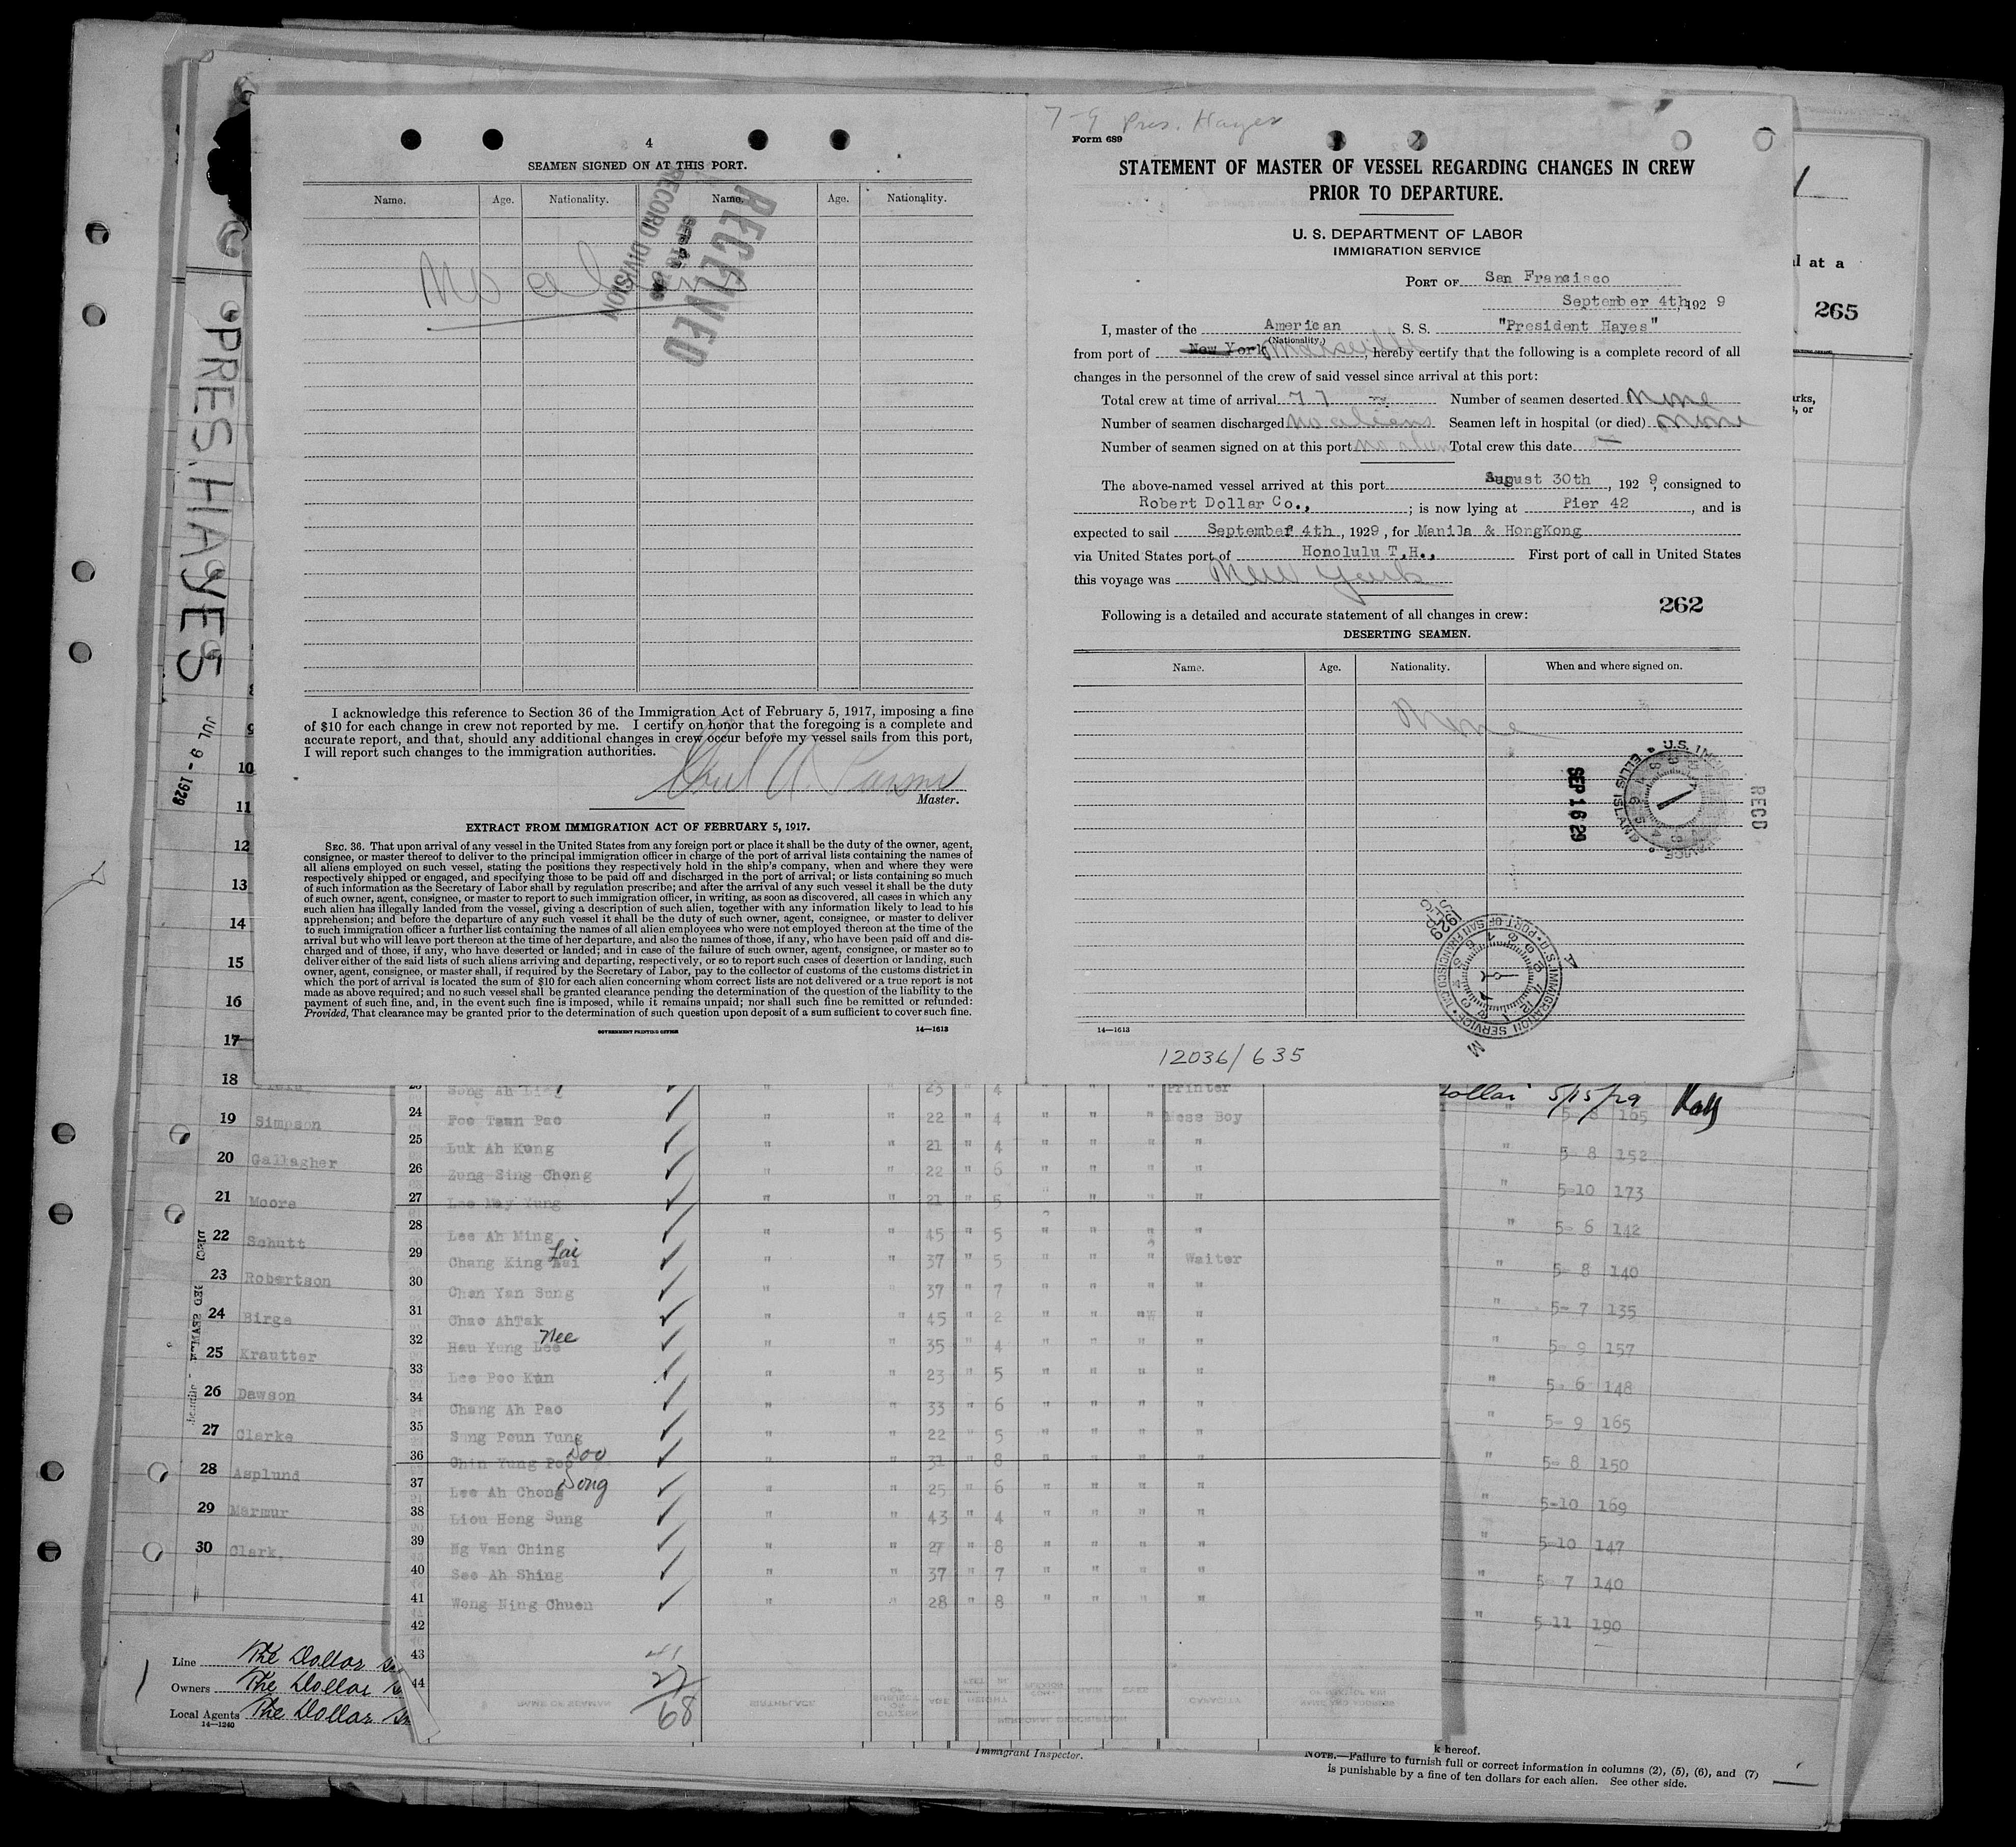 4
SEAMEN SIGNED ON AT THIS PORT.
Name. Age. Nationality. Name. Age. Nationality.
No aliens
RECEIVED
RECORD DIVISION
I acknowledge this reference to Section 36 of the Immigration Act of February 5, 1917, imposing a fine
of $10 for each change in crew not reported by me. I certify on honor that the foregoing is a complete and
accurate report, and that, should any additional changes in crew occur before my vessel sails from this port,
I will report such changes to the immigration authorities.
Master.
EXTRACT FROM IMMIGRATION ACT OF FEBRUARY 5, 1917.
SEC. 36. That upon arrival of any vessel in the United States from any foreign port or place it shall be the duty of the owner, agent,
consignee, or master thereof to deliver to the principal immigration officer in charge of the port of arrival lists containing the names of
all aliens employed on such vessel, stating the positions they respectively hold in the ship's company, when and where they were
respectively shipped or engaged, and specifying those to be paid off and discharged in the port of arrival; or lists containing so much
of such information as the Secretary of Labor shall by regulation prescribe; and after the arrival of any such vessel it shall be the duty
of such owner, agent, consignee, or master to report to such immigration officer, in writing, as soon as discovered, all cases in which any
such alien has illegally landed from the vessel, giving a description of such alien, together with any information likely to lead to his
apprehension; and before the departure of any such vessel it shall be the duty of such owner, agent, consignee, or master to deliver
to such immigration officer a further list containing the names of all alien employees who were not employed thereon at the time of the
arrival but who will leave port thereon at the time of her departure, and also the names of those, if any, who have been paid off and dis-
charged and of those, if any, who have deserted or landed; and in case of the failure of such owner, agent, consignee, or master so to
deliver either of the said lists of such aliens arriving and departing, respectively, or so to report such cases of desertion or landing, such
owner, agent, consignee, or master shall, if required by the Secretary of Labor, pay to the collector of customs of the customs district in
which the port of arrival is located the sum of $10 for each alien concerning whom correct lists are not delivered or a true report is not
made as above required; and no such vessel shall be granted clearance pending the determination of the question of the liability to the
payment of such fine, and, in the event such fine is imposed, while it remains unpaid; nor shall such fine be remitted or refunded:
Provided, That clearance may be granted prior to the determination of such question upon deposit of a sum sufficient to cover such fine.
GOVERNMENT PRINTING OFFICE 14—1613
7-9 Pres. Hayes
Form 689
STATEMENT OF MASTER OF VESSEL REGARDING CHANGES IN CREW
PRIOR TO DEPARTURE.
U. S. DEPARTMENT OF LABOR
IMMIGRATION SERVICE
PORT OF San Francisco
September 4th, 192 9
I, master of the American S. S. "President Hayes"
(Nationality.)
from port of New York Marseille hereby certify that the following is a complete record of all
changes in the personnel of the crew of said vessel since arrival at this port:
Total crew at time of arrival 77 Number of seamen deserted None
Number of seamen discharged No aliens Seamen left in hospital (or died) None
Number of seamen signed on at this port no aliens Total crew this date
The above-named vessel arrived at this port August 30th, 192 9, consigned to
Robert Dollar Co., ; is now lying at Pier 42, and is
expected to sail September 4th, 1929, for Manila & HongKong
via United States port of Honolulu T.H., First port of call in United States
this voyage was New York
262
Following is a detailed and accurate statement of all changes in crew:
DESERTING SEAMEN.
Name. Age. Nationality. When and where signed on.
None
SEP 16 29
RECD
U.S. IMMIGRATION SERVICE PORT OF SAN FRANCISCO
1929
14—1613
12036/635
PRES. HAYES
JUL 9 - 1929
l at a
265
10
11
12
13
14
15
16
17
18
19 Simpson
20 Gallagher
21 Moore
22 Schutt
23 Robertson
24 Birge
25 Krautter
26 Dawson
27 Clarke
28 Asplund
29 Marmur
30 Clark,
Song Ah 23 " 4 " " " Printer
24 Foo Tsun Pao " " 22 " 4 " " " Mess Boy
25 Luk Ah Kung " " 21 " 4 " " " "
26 Zung Sing Chong " " 22 " 6 " " " "
27 Lee May Yung " " 21 " 5 " " "
28 Lee Ah Ming " " 45 " 5 " " " "
29 Chang King Lai " " 37 " 5 " " " Waiter
30 Chen Yan Sung " " 37 " 7 " " " "
31 Chao AhTak " " 45 " 2 " " " "
32 Hau Yung Lee Nee " " 35 " 4 " " " "
33 Lee Poo Kun " " 23 " 5 " " " "
34 Chang Ah Pao " " 33 " 6 " " " "
35 Sung Poun Yung " " 22 " 5 " " " "
36 Chin Yung Poo Soo " " 31 " 8 " " " "
37 Lee Ah Chong Song " " 25 " 6 " " " "
38 Liou Hong Sung " " 43 " 4 " " " "
39 Ng Van Ching " " 27 " 8 " " " "
40 See Ah Shing " " 37 " 7 " " " "
41 Wong Ning Chuen " " 28 " 8 " " " "
42
43
44
41
27
68
Dollar 5/15/29
165
" 5- 8 152
" 5-10 173
" 5- 6 142
" 5- 8 140
" 5- 7 135
" 5- 9 157
" 5- 6 148
" 5- 9 165
" 5- 8 150
" 5-10 169
" 5-10 147
" 5- 7 140
" 5-11 190
Line The Dollar
Owners The Dollar
Local Agents The Dollar
14—1240
Immigrant Inspector.
k hereof.
NOTE.—Failure to furnish full or correct information in columns (2), (5), (6), and (7)
is punishable by a fine of ten dollars for each alien. See other side.